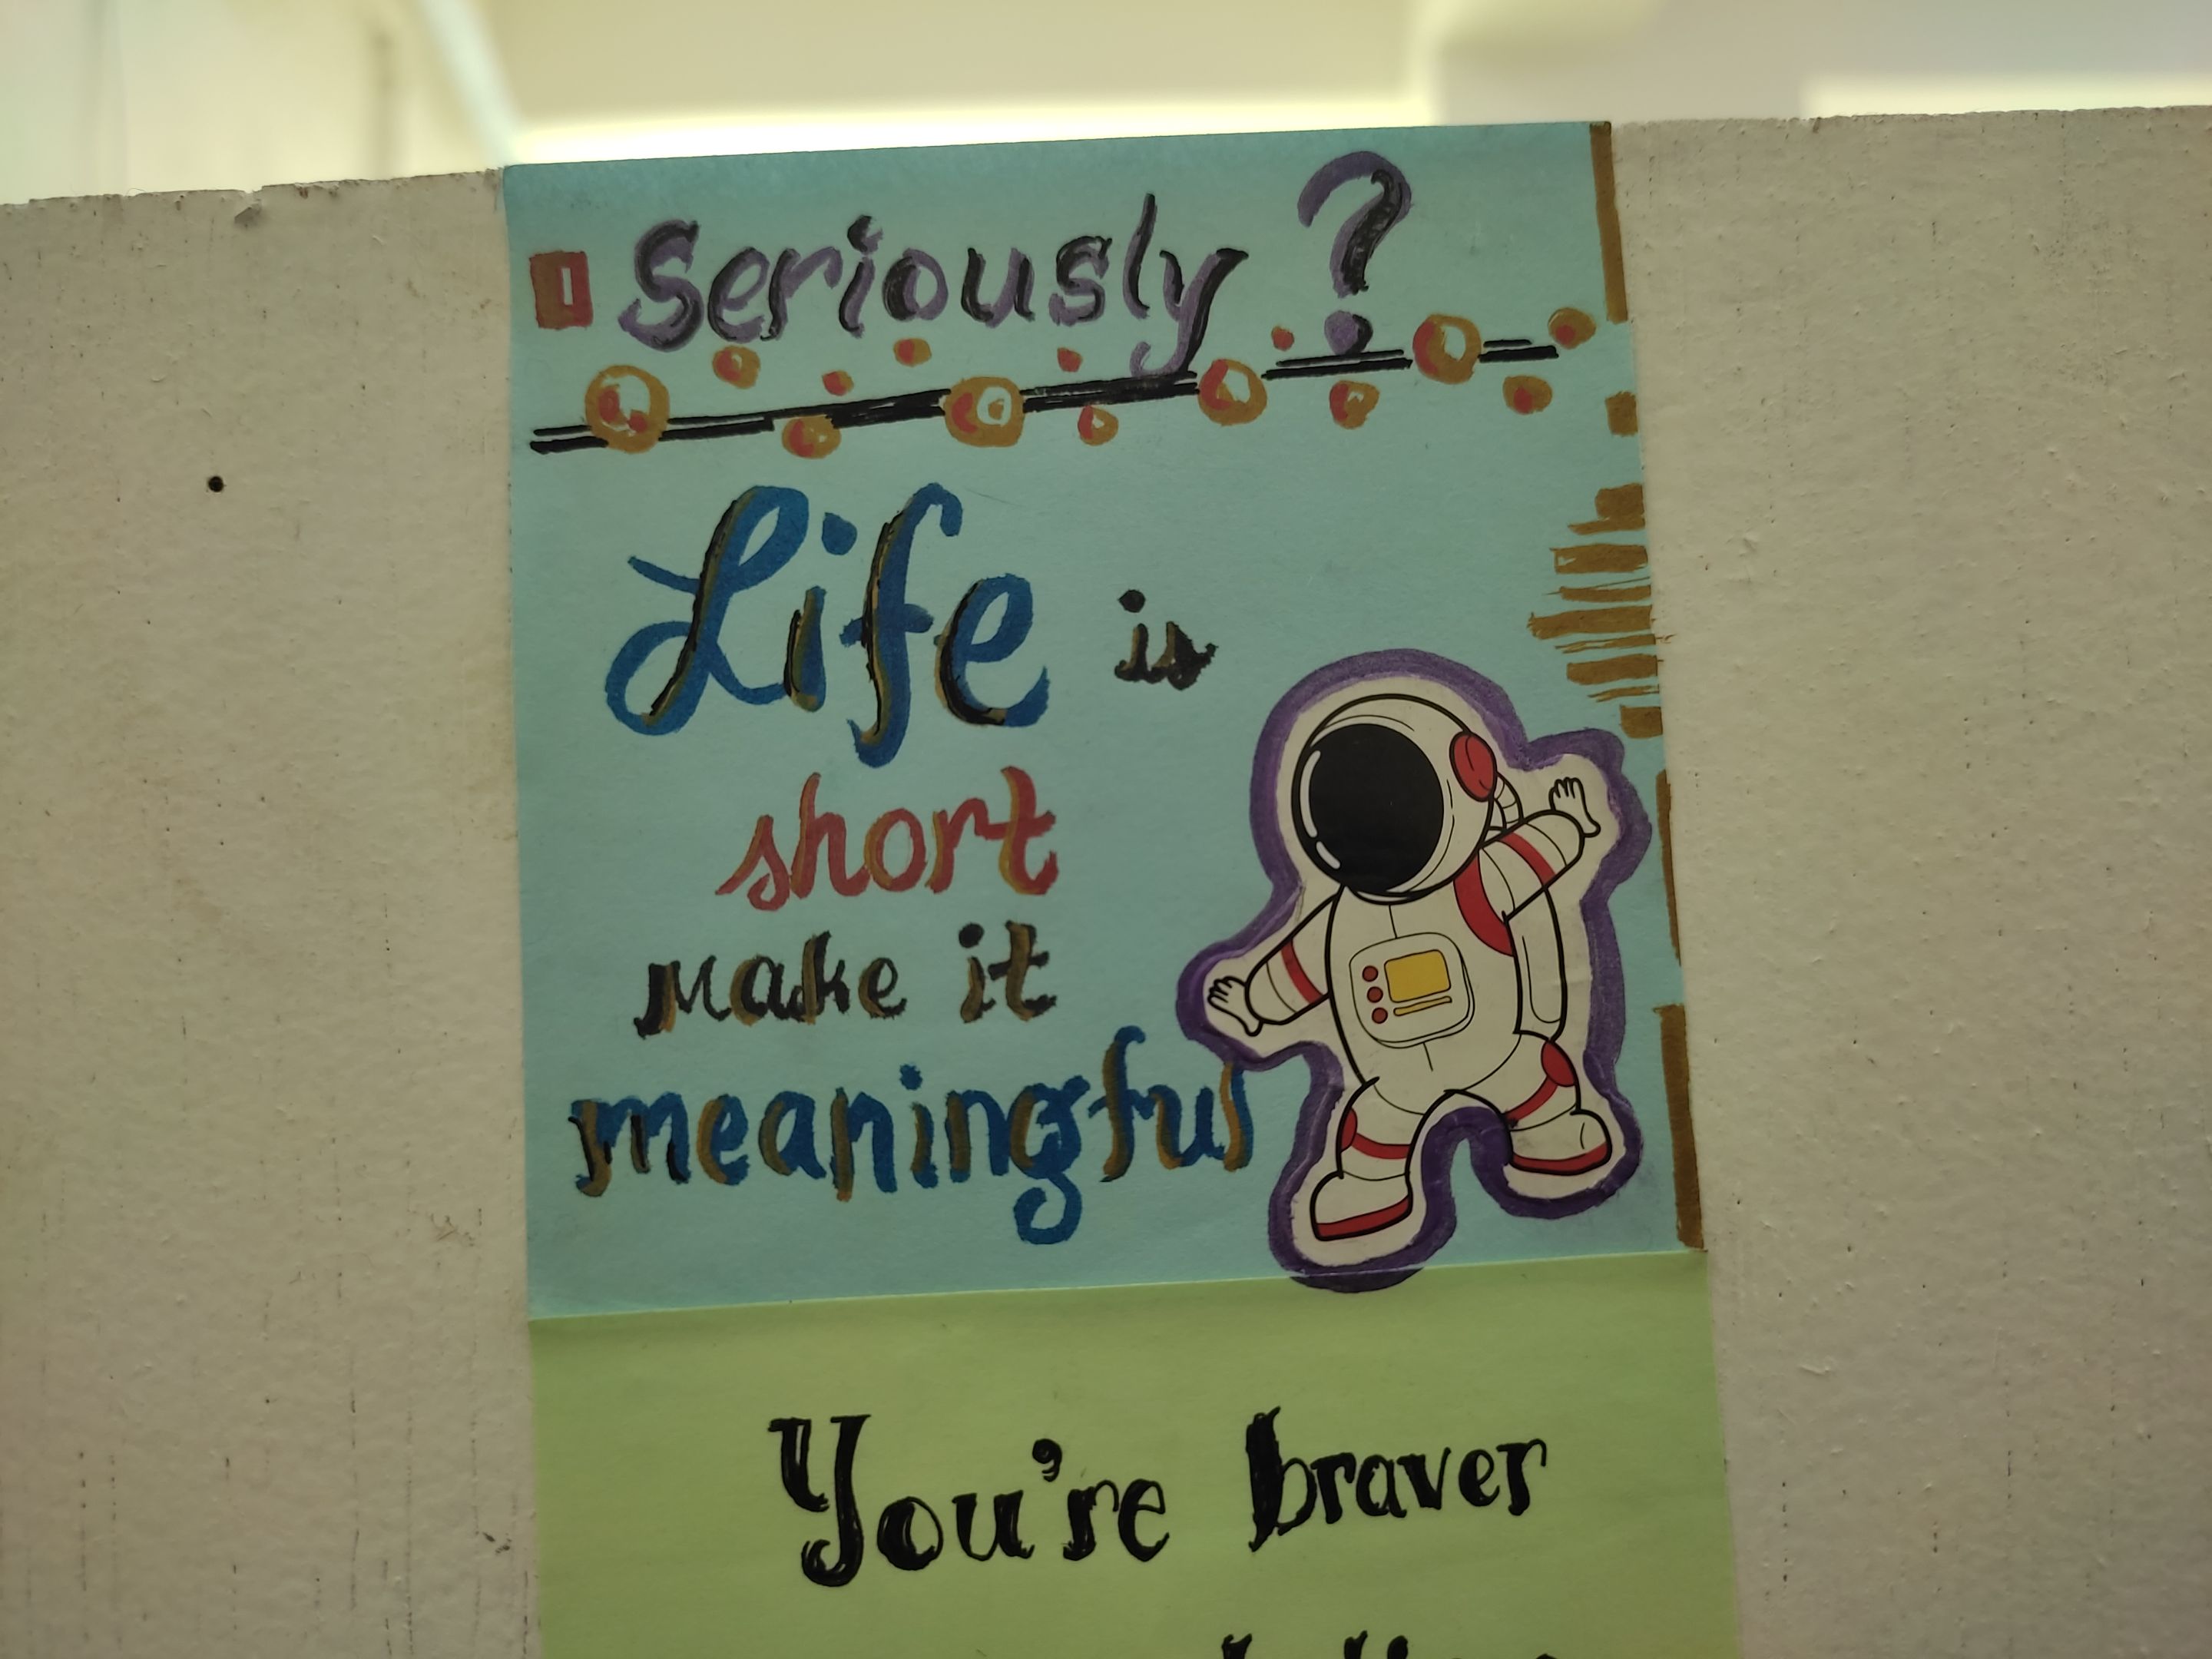 Seriously ?
Life is
short
make it
meaningful
You're braver